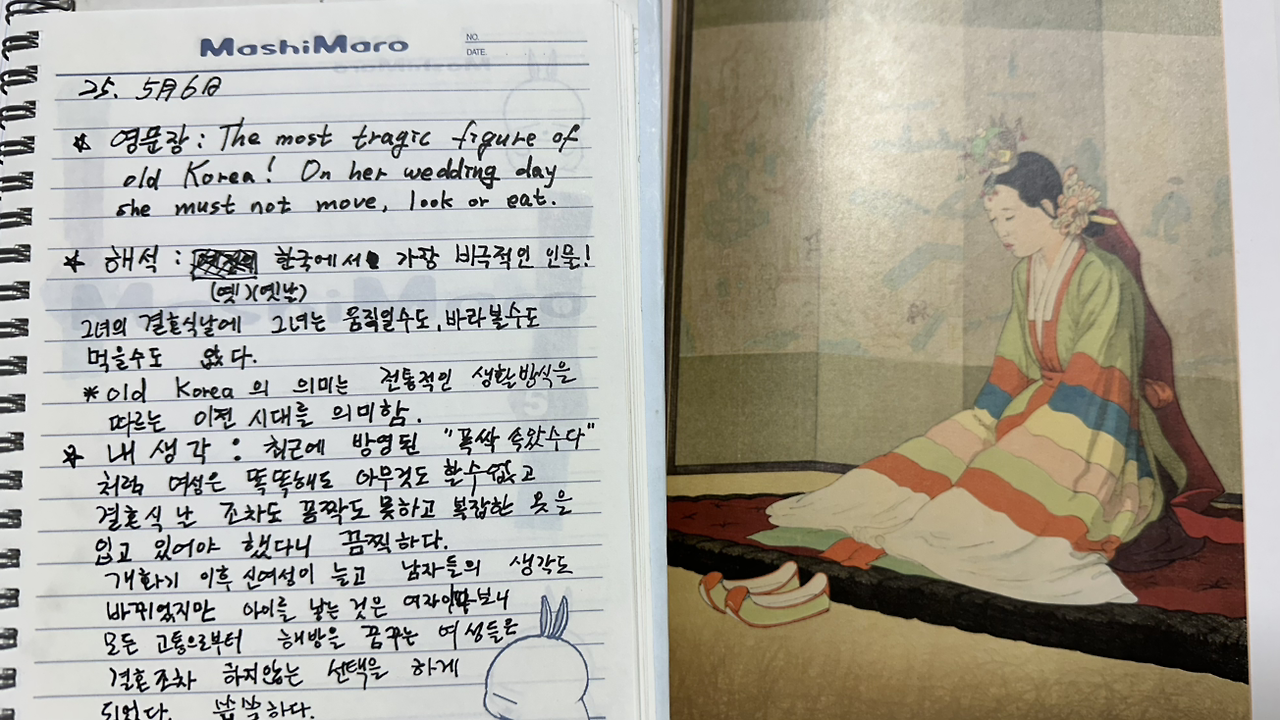 MashiMaro
NO.
DATE.
25. 5月6日
* 영문장 : The most tragic figure of
old Korea! On her wedding day
she must not move, look or eat.
* 해석 : 한국에서 가장 비극적인 인물!
(옛)(옛날)
그녀의 결혼식날에 그녀는 움직일수도, 바라볼수도
먹을수도 없다.
* old Korea의 의미는 전통적인 생활방식을
따르는 이전 시대를 의미함.
* 내 생각 : 최근에 방영된 "폭싹 속았수다"
처럼 여성은 똑똑해도 아무것도 할수없고
결혼식 난 조차도 꿈짝도 못하고 복잡한 옷을
입고 있어야 했다니 끔찍하다.
개화기 이후 신여성이 늘고 남자들의 생각도
바뀌었지만 아이를 낳는 것은 여자이다보니
모든 고통으로부터 해방을 꿈꾸는 여성들은
결혼조차 하지않는 선택을 하게
되었다. 씁쓸하다.